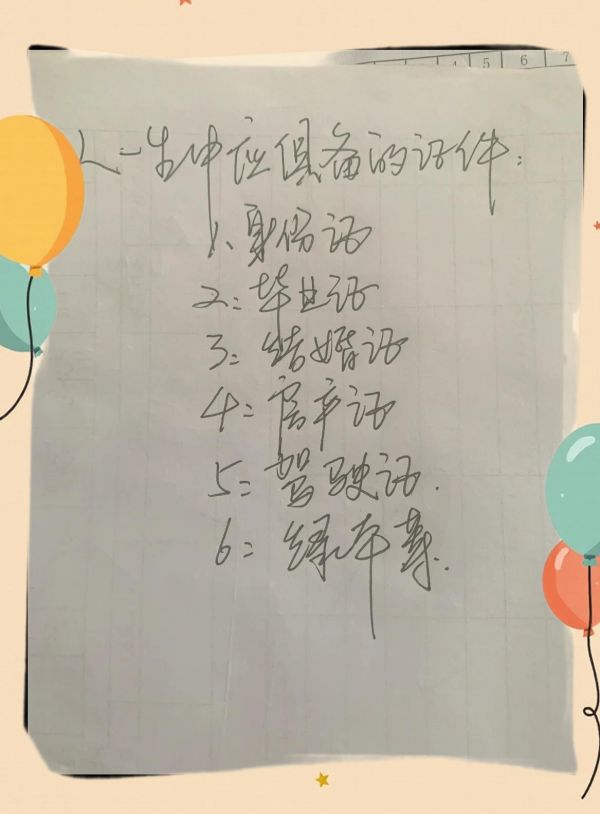 4 5 6 7
人一生中应俱备的证件:
1、身份证
2: 毕业证
3: 结婚证
4: 房产证
5: 驾驶证.
6: 绿本